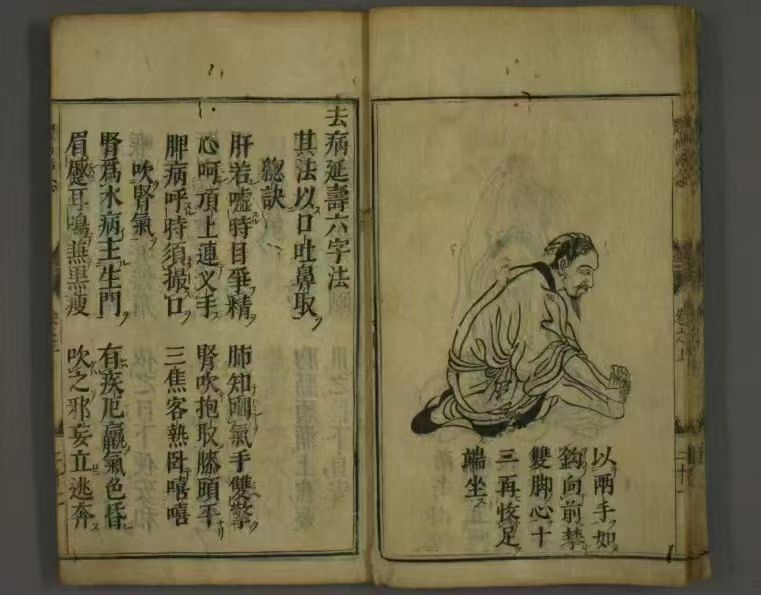 以両手如
鈎向前攀
雙脚心十
二再收足
端坐
去病延壽六字法
其法以口吐鼻取
總訣
肝若嘘時目爭精
肺知呬氣手雙擎
心呵頂上連叉手
腎吹抱取膝頭平
脾病呼時須撮口
三焦客熱卧嘻嘻
吹腎氣
腎爲水病主生門
有疾尫羸氣色昏
眉蹙耳鳴兼黒瘦
吹之邪妄立逃奔